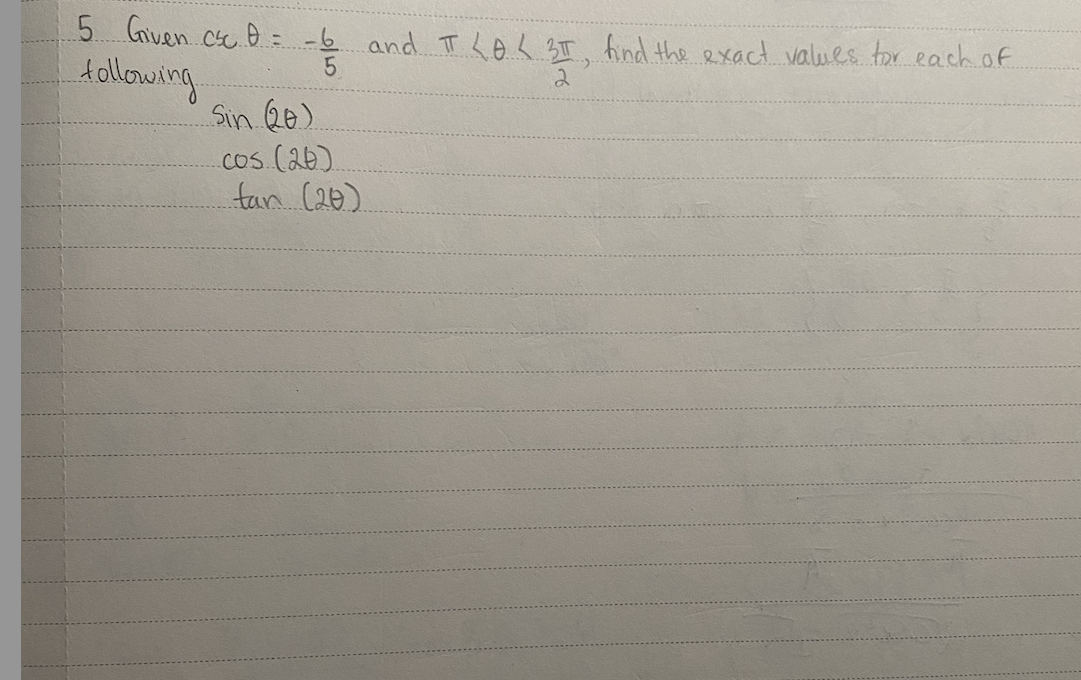 5 Given csc θ = -6/5 and π < θ < 3π/2, find the exact values for each of
following
Sin (2θ)
cos (2θ)
tan (2θ)